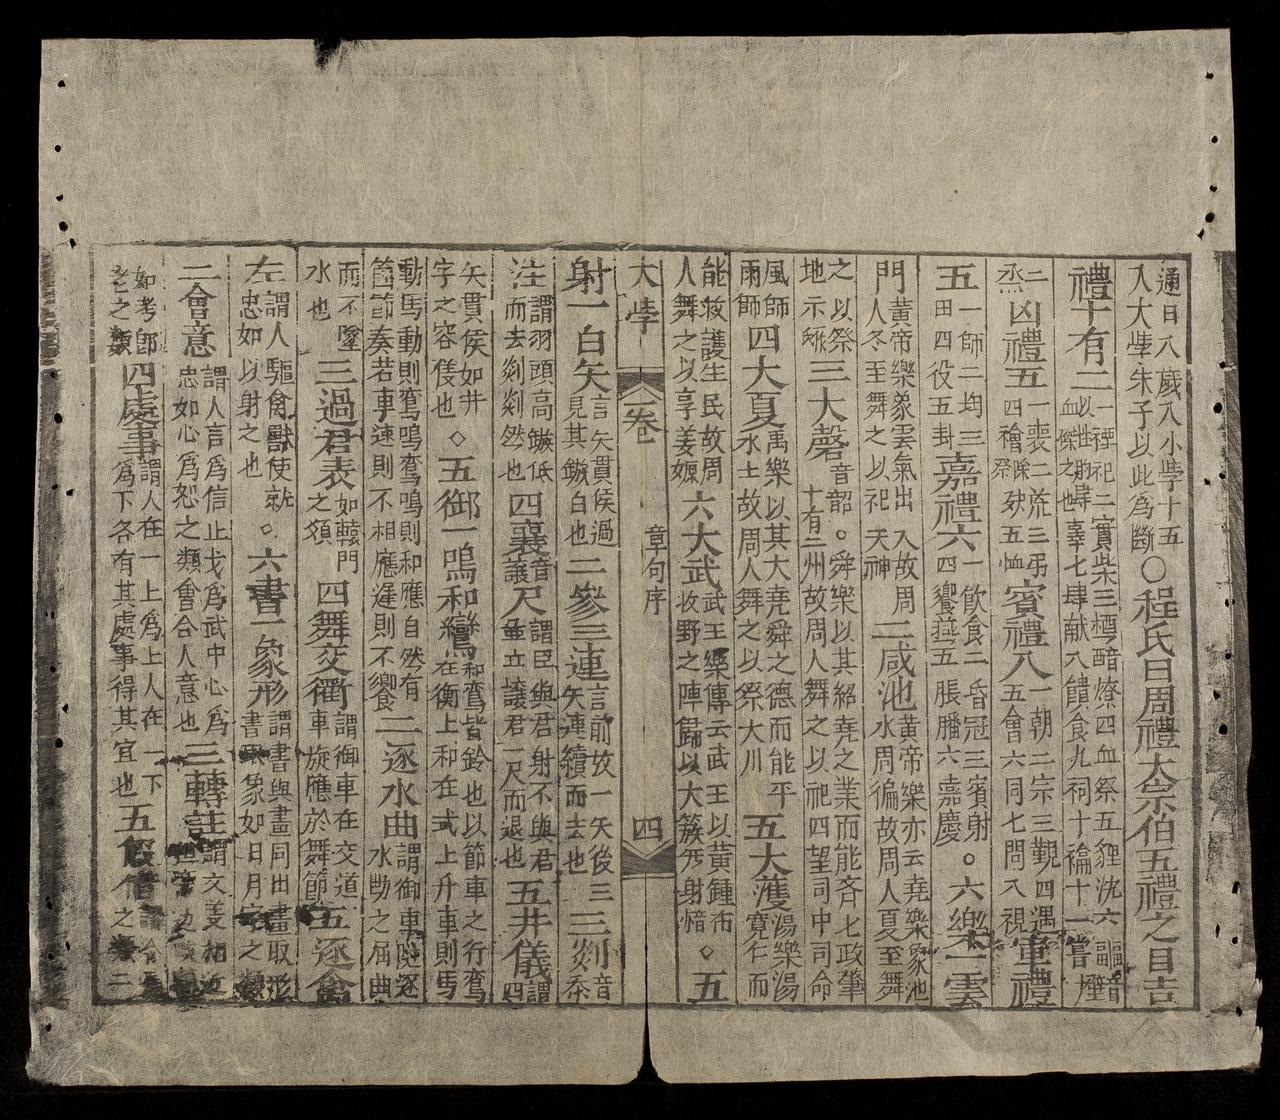 通曰八歲入小學十五
入大學朱子以此爲斷
○程氏曰周禮大宗伯五禮之目吉
禮十有二
一禋祀二實柴三槱燎四血祭五貍沈六疈
以牲
血
辜七肆献八饋食九祠十禴十一嘗
二
烝
凶禮五
一喪二荒三弔
四禬
五恤
賓禮八
一朝二宗三覲四遇
五會六同七問八視
軍禮
五
一師二均三
田四役五封
嘉禮六
一飮食二昏冠三賓射
四饗燕五脤膰六嘉慶
○六樂一雲
門
黃帝樂象雲氣出入故周
人冬至舞之以祀天神
二咸池
黃帝樂亦云堯樂象池
水周徧故周人夏至舞
之以祭
地示
三大磬
音韶○舜樂以其紹堯之業而能齊七政肇
十有二州故周人舞之以祀四望司中司命
風師
雨師
四大夏
禹樂以其大堯舜之德而能平
水土故周人舞之以祭大川
五大濩
湯樂湯
寬仁而
能救護生民故周
人舞之以享姜嫄
六大武
武王樂傳云武王以黃鍾布
牧野之陣歸以大簇无射
◇五
大學
卷
章句序
四
射一白矢
言矢貫侯過
見其鏃白也
二參三連
言前放一矢後三
矢連續而去也
三剡
音
注
謂羽頭高鏃低
而去剡剡然也
四襄
音
讓
尺
謂臣與君射不與君
並立讓君一尺而退也
五井儀
謂
四
矢貫侯如井
字之容儀也
◇五御一鳴和鸞
和鸞皆鈴也以節車之行鸞
在衡上和在式上升車則馬
動馬動則鸞鳴鸞鳴則和應自然有
箇節奏若車速則不相應遲則不響
二逐水曲
謂御車隨逐
水勢之屈曲
而不墜
水也
三過君表
如轅門
之類
四舞交衢
謂御車在交道
車旋應於舞節
五逐禽
左
謂人驅禽獸使就
忠如以射之也
○六書一象形
謂書與畫同出畫取形
書取象如日月字之類
二會意
謂人言爲信止戈爲武中心爲
忠如心爲恕之類會合人意也
三轉註
謂文義相近
如考
老之類
四處事
謂人在一上爲上人在一下
爲下各有其處事得其宜也
五假借